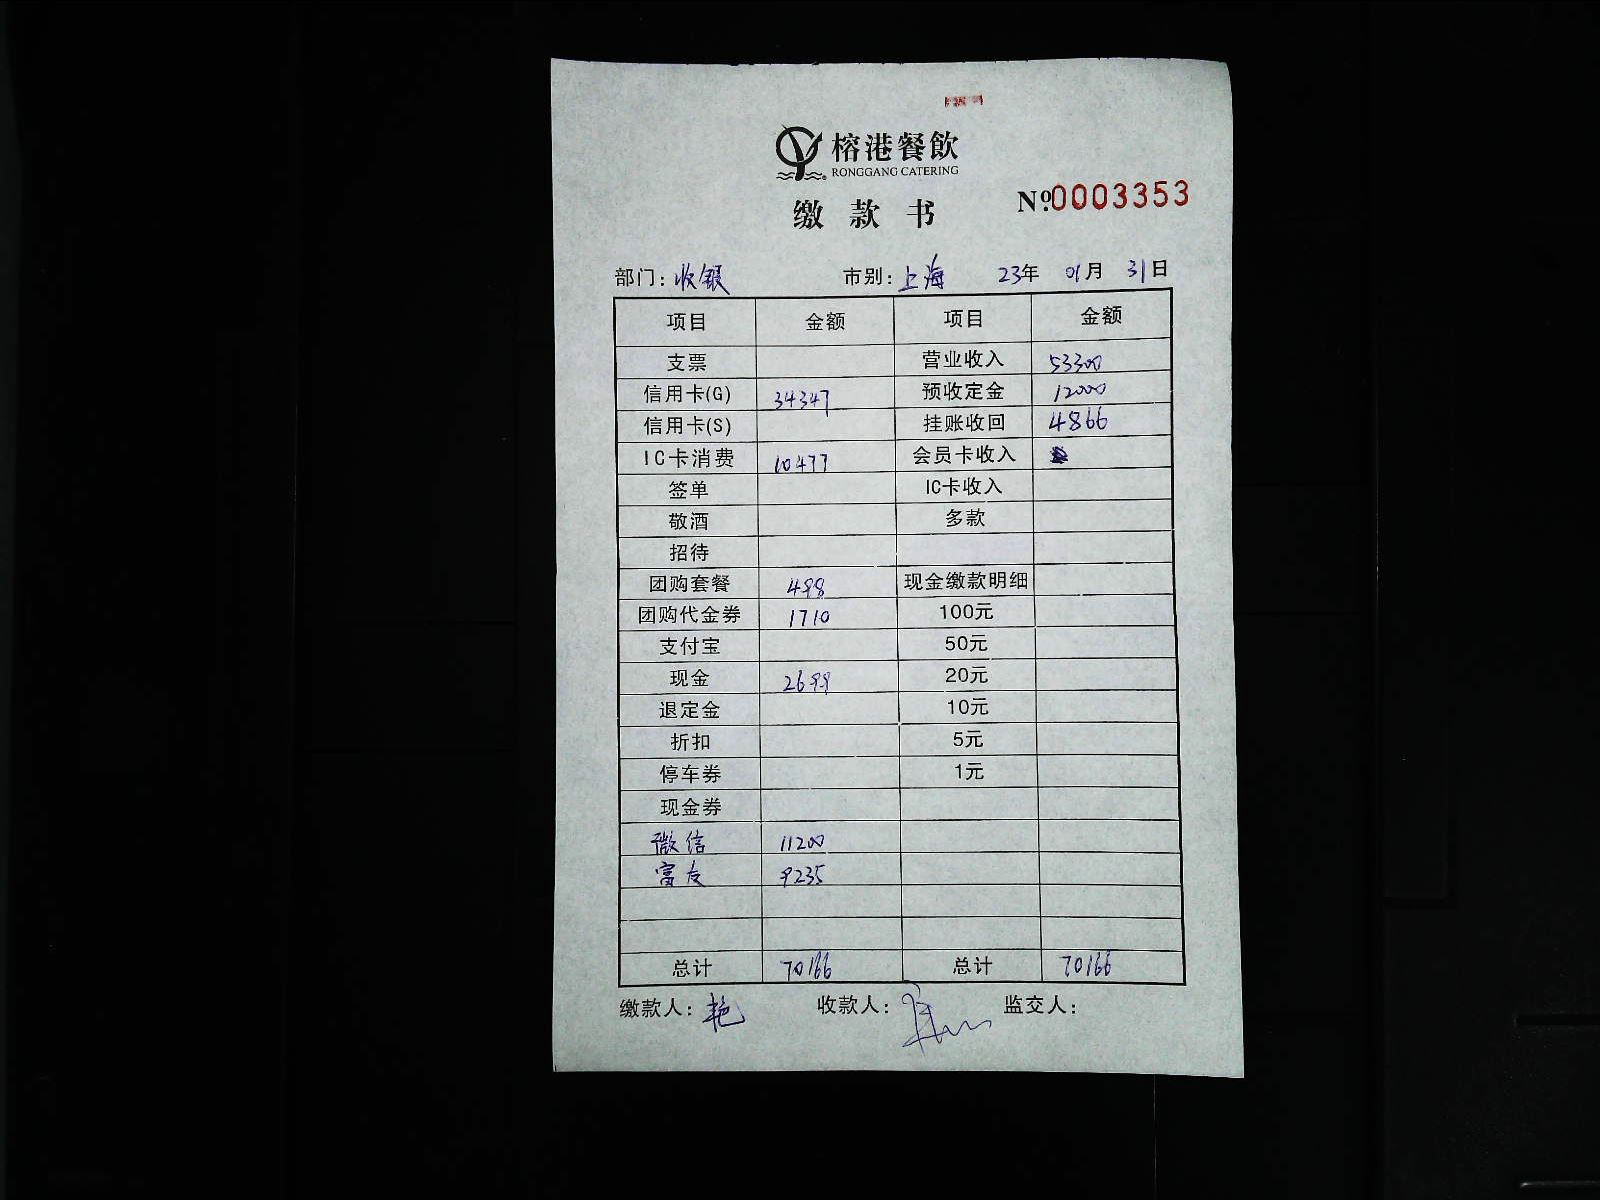 榕港餐飲
RONGGANG CATERING
缴款书 №0003353
部门：收银 市别：上海 23年 01月 31日
项目 金额 项目 金额
支票 营业收入 53300
信用卡(G) 34347 预收定金 12000
信用卡(S) 挂账收回 4866
IC卡消费 10477 会员卡收入
签单 IC卡收入
敬酒 多款
招待
团购套餐 498 现金缴款明细
团购代金券 1710 100元
支付宝 50元
现金 2699 20元
退定金 10元
折扣 5元
停车券 1元
现金券
微信 11200
富友 9235
总计 70166 总计 70166
缴款人：艳 收款人： 监交人：